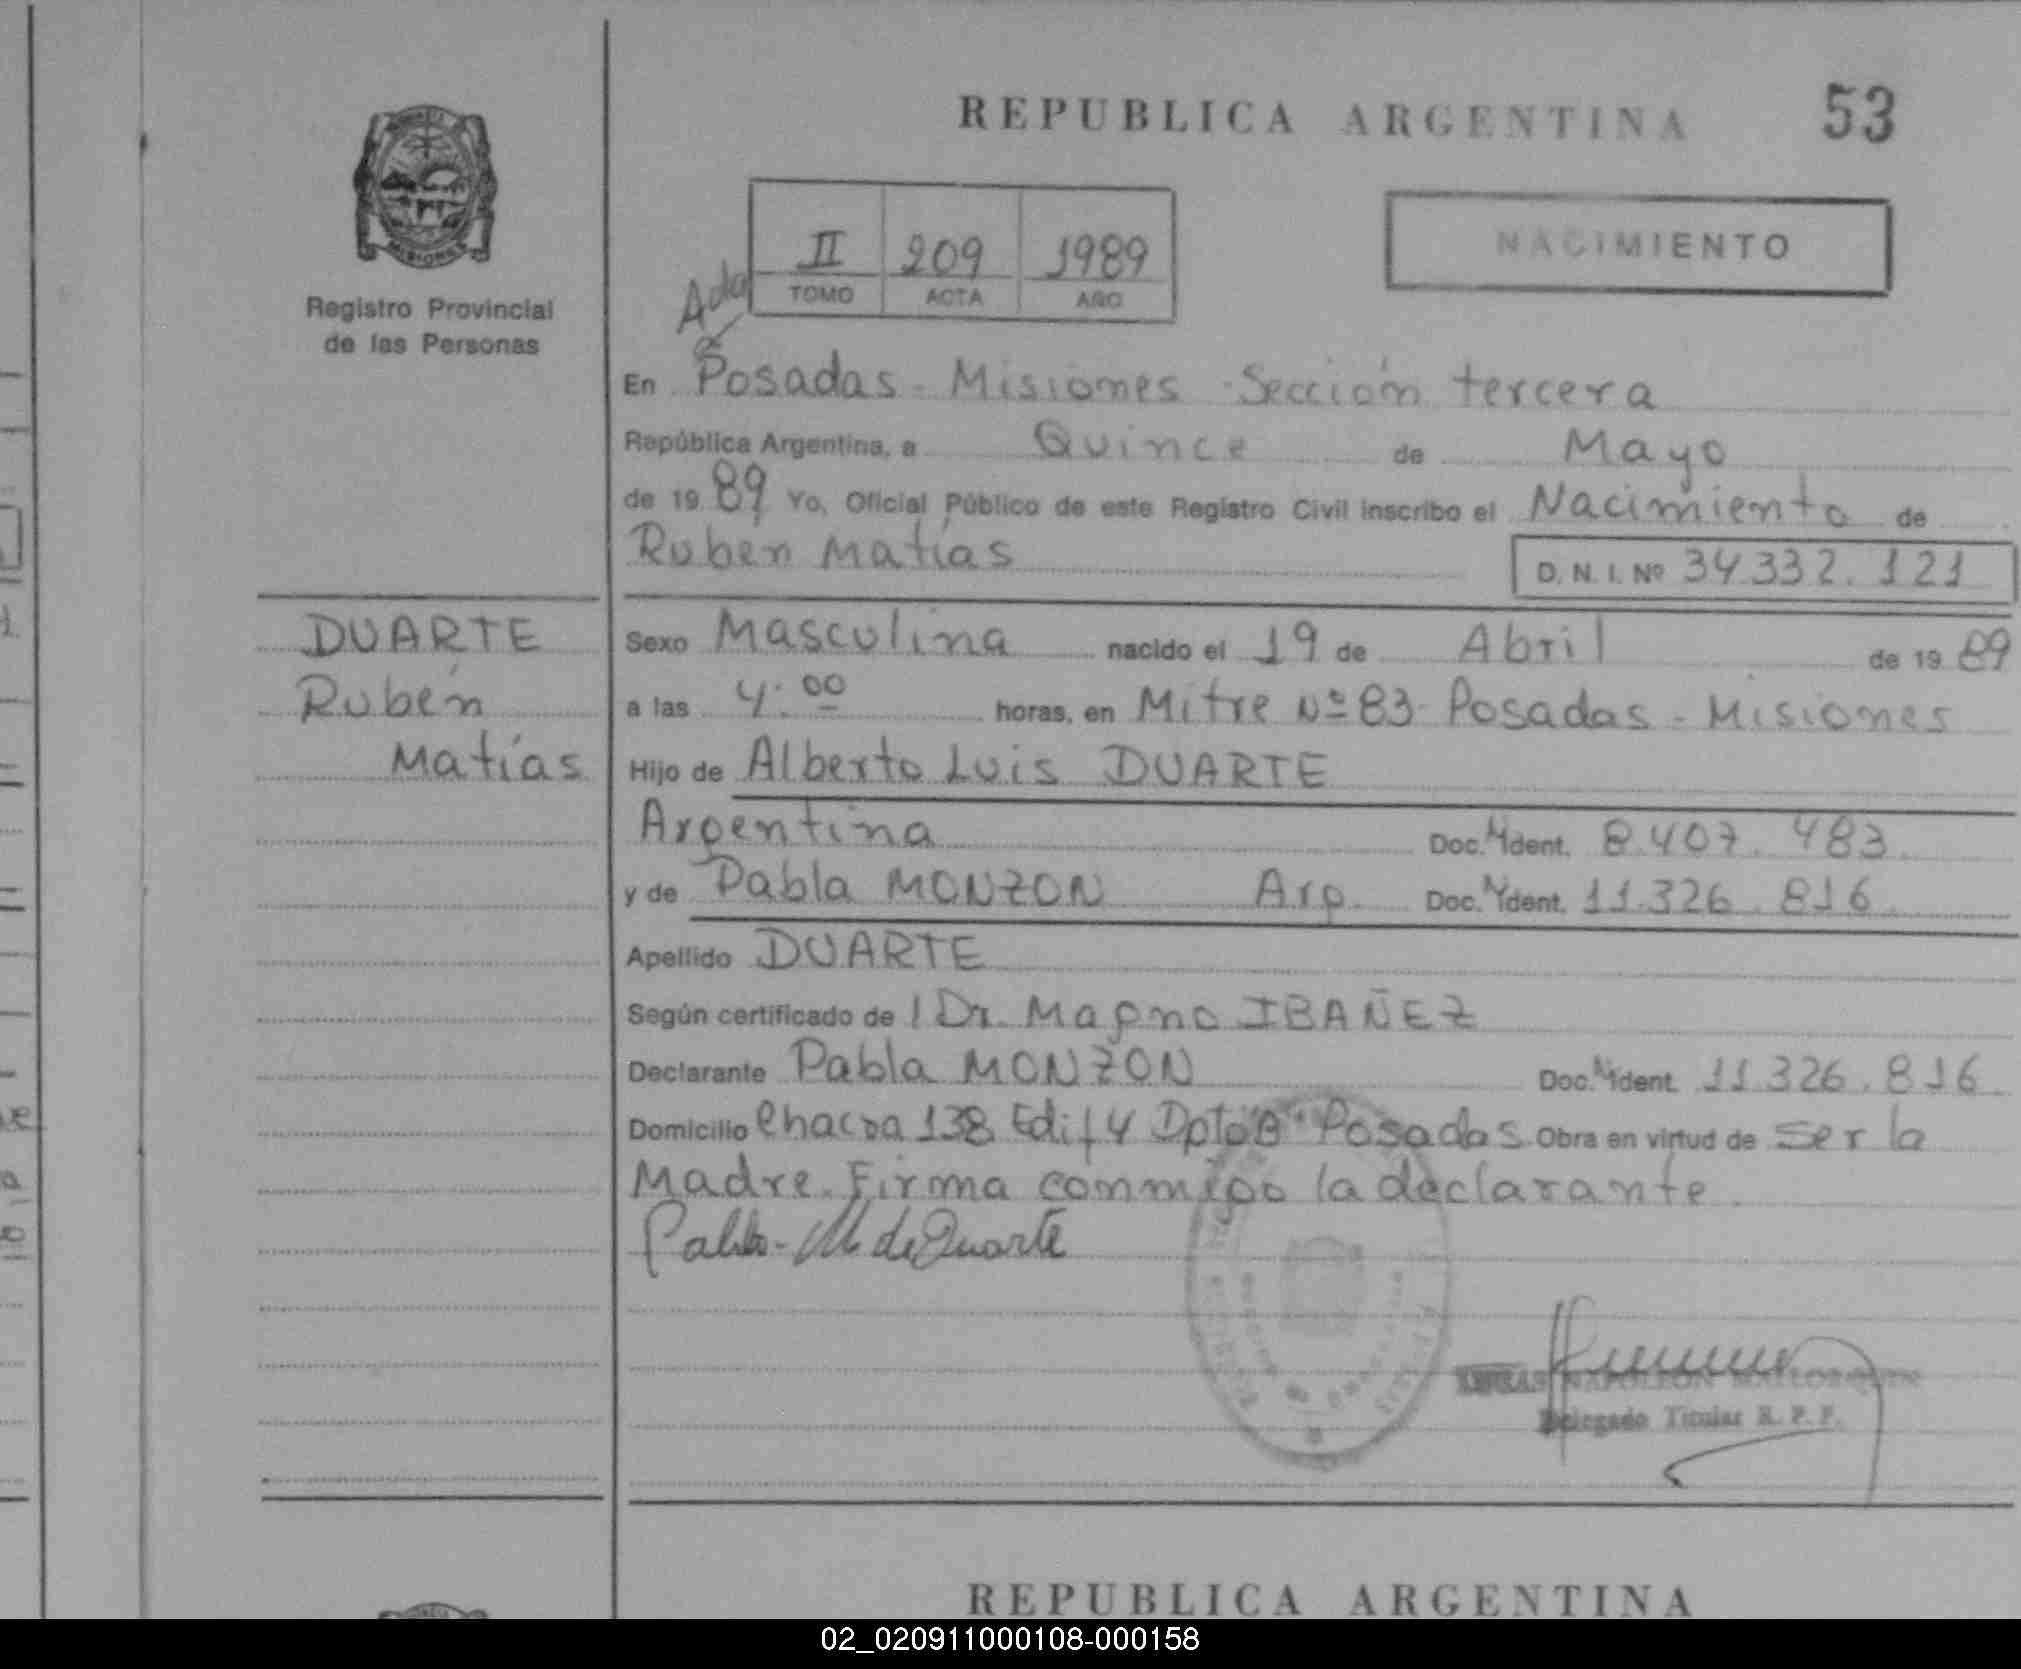 REPUBLICA ARGENTINA 53
II 209 1989
TOMO ACTA AÑO
NACIMIENTO
MISIONES
Registro Provincial
de las Personas
En Posadas - Misiones - Sección tercera
República Argentina, a Quince de Mayo
de 19 89 Yo, Oficial Público de este Registro Civil inscribo el Nacimiento de
Ruben Matías D. N. I. Nº 34.332.121
DUARTE
Rubén
Matías
Sexo Masculina nacido el 19 de Abril de 19 89
a las 4:00 horas, en Mitre Nº 83 Posadas - Misiones
Hijo de Alberto Luis DUARTE
Argentina Doc. Ident. 8.407.483
y de Pabla MONZON Arg. Doc. Ident. 11.326.816
Apellido DUARTE
Según certificado de l Dr. Magno IBAÑEZ
Declarante Pabla MONZON Doc. Ident. 11.326.816
Domicilio Chacra 138 Edif 4 Dpto Posadas Obra en virtud de ser la
Madre. Firma conmigo la declarante.
Pabla M. de Duarte
NAPOLEON
Delegado Titular R. P. P.
REPUBLICA ARGENTINA
02_020911000108-000158